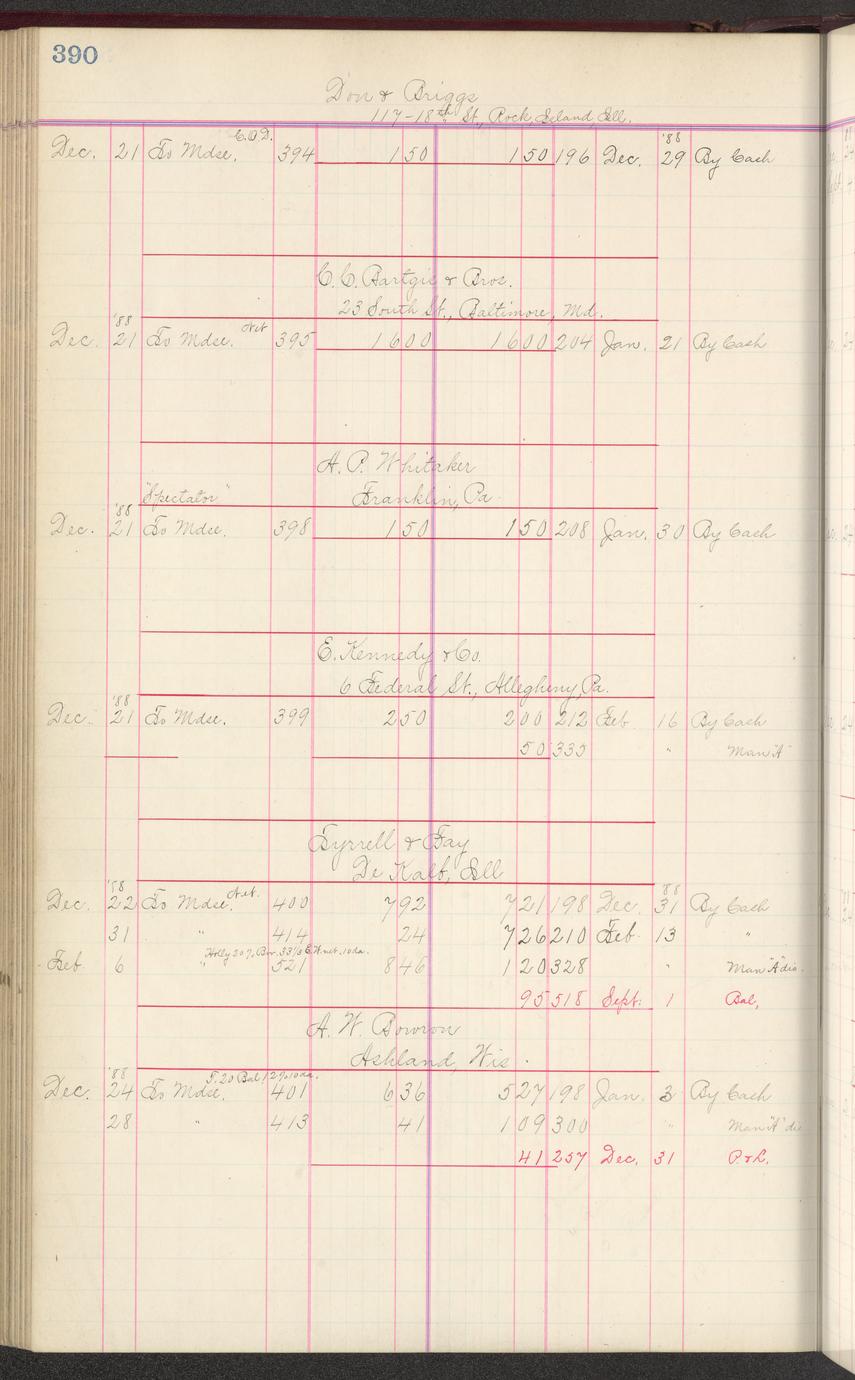 390
Don & Briggs
117-18th St., Rock Island, Ill.
C.O.D. '88
Dec. 21 To Mdse. 394 1 50 1 50 196 Dec. 29 By Cash
C.C. Bartgis & Bros.
23 South St., Baltimore, Md.
'88 Net
Dec. 21 To Mdse. 395 16 00 16 00 204 Jan. 21 By Cash
A.P. Whitaker
"Spectator" Franklin, Pa
'88
Dec. 21 To Mdse. 398 1 50 1 50 208 Jan. 30 By Cash
E. Kennedy & Co.
6 Federal St., Allegheny, Pa.
'88
Dec. 21 To Mdse. 399 2 50 2 00 212 Feb 16 By Cash
50 335 " Man "A"
Tyrrell & Fay
De Kalb, Ill
'88 Net. '88
Dec. 22 To Mdse. 400 7 92 7 21 198 Dec. 31 By Cash
31 " 414 24 7 26 210 Feb 13 "
Holly 20% Bor. 33⅓ E.W. net. 10 da.
Feb 6 " 521 8 46 1 20 328 " Man "A" dis.
95 518 Sept. 1 Bal,
A.W. Bowron
Ashland, Wis.
'88 T. 20 Bal / 2% 10 da.
Dec. 24 To Mdse. 401 6 36 5 27 198 Jan. 3 By Cash
28 " 413 41 1 09 300 " Man "A" dis
41 257 Dec. 31 P. & L.